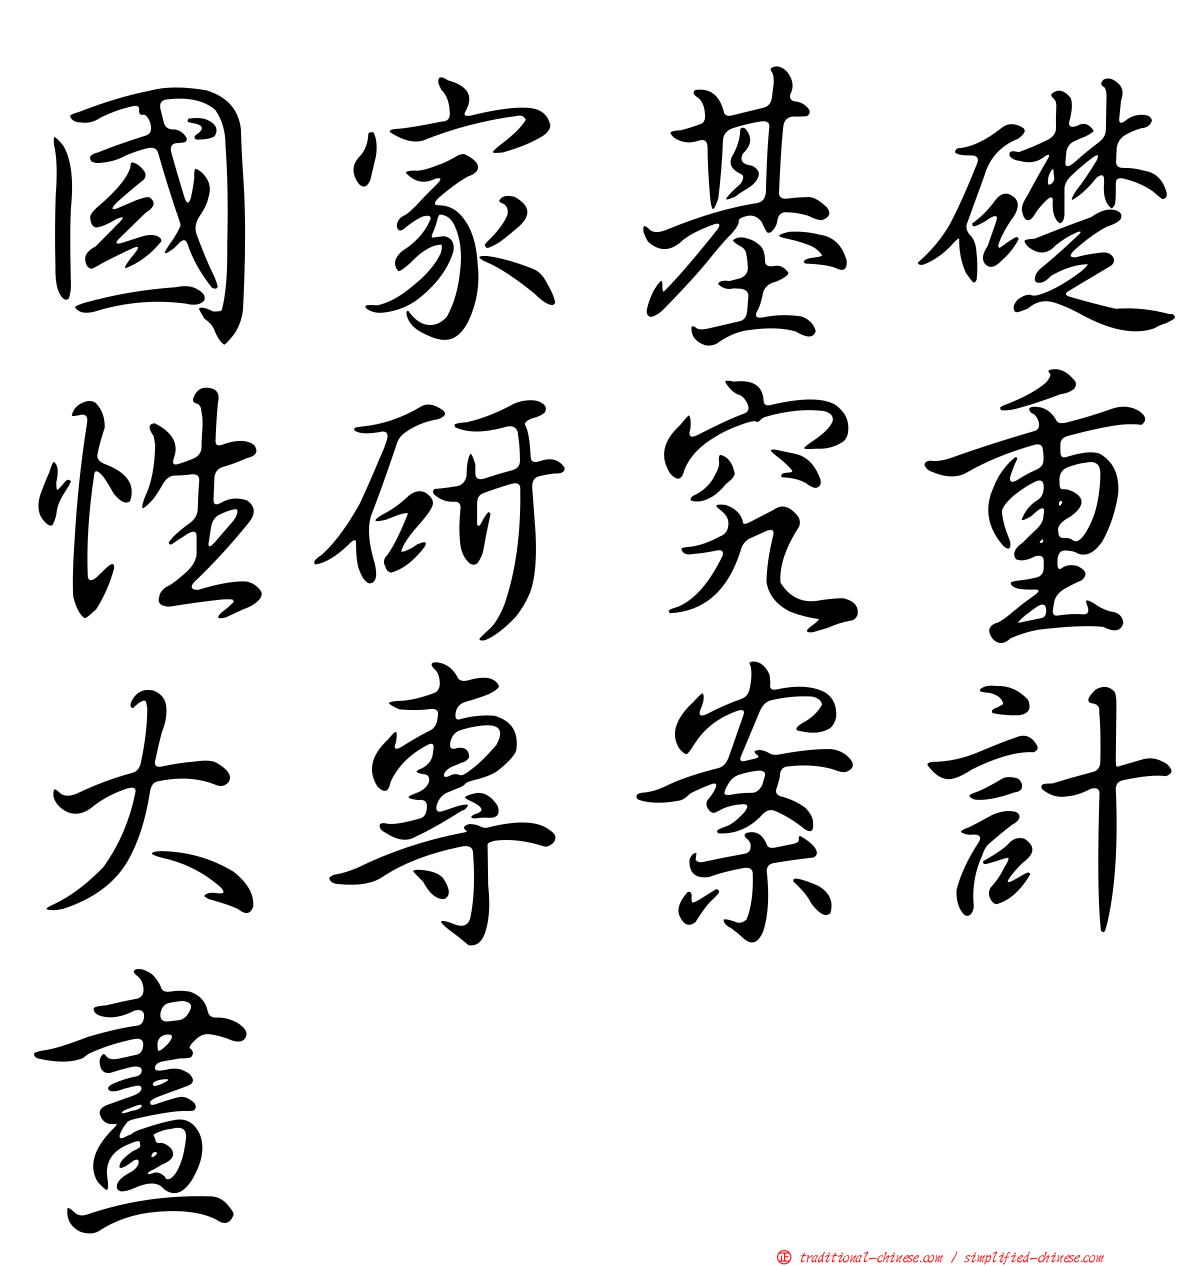 國家基礎
性研究重
大專案計
畫
正 traditional-chinese.com / simplified-chinese.com